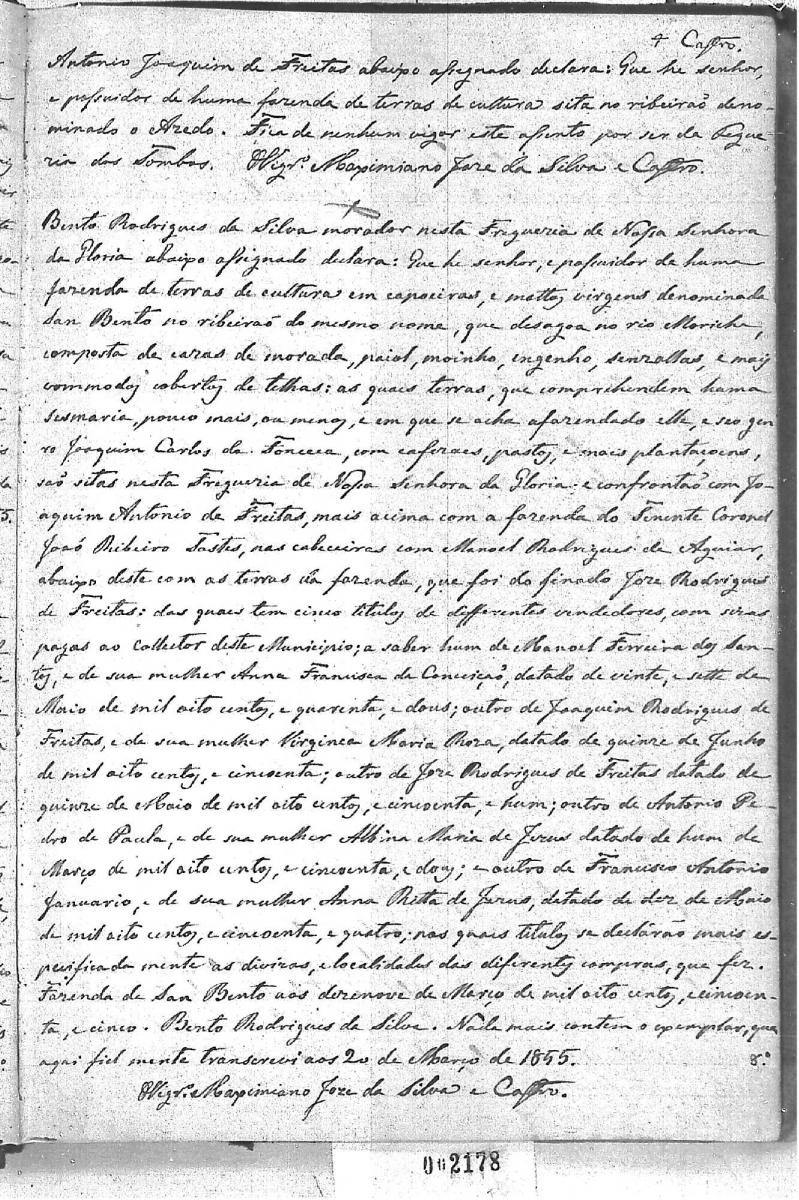 4 Castro.
Antonio Joaquim de Freitas abaixo assignado declara: Que he senhor,
e possuidor de huma fazenda de terras de cultura sita no ribeiraõ deno-
minado o Azedo. Fica de nenhum vigor este assento por ser da Fregue-
zia dos Tombos. O Vigr.º Maximiano Joze da Silva e Castro.
Bento Rodrigues da Silva morador nesta Freguezia de Nossa Senhora
da Gloria abaixo assignado declara: Que he senhor, e possuidor de huma
fazenda de terras de cultura em capoeiras, e mattos virgens denominada
San Bento no ribeiraõ do mesmo nome, que desagoa no rio
composta de cazas de morada, paiol, moinho, engenho, senzallas, e mais
commodos cobertos de telhas: as quaes terras, que comprehendem huma
sesmaria, pouco mais, ou menos, e em que se acha afazendado elle, e seo gen
ro Joaquim Carlos da Fonceca, com cafezaes, pastos, e mais plantacoens,
saõ sitas nesta Freguezia de Nossa Senhora da Gloria: e confrontaõ com Jo-
aquim Antonio de Freitas, mais acima com a fazenda do Tenente Coronel
Joaõ Ribeiro Tostes, nas cabeceiras com Manoel Rodrigues de Aguiar,
abaixo deste com as terras da fazenda, que foi do finado Joze Rodrigues
de Freitas: das quaes tem cinco titulos de differentes vendedores, com sizas
pagas ao collector deste Municipio; a saber hum de Manoel Ferreira dos San-
tos, e de sua mulher Anna Francisca da Conceiçaõ, datado de vinte, e sette de
Maio de mil oito centos, e quarenta, e dous; outro de Joaquim Rodrigues de
Freitas, e de sua mulher Virginea Maria Roza, datado de quinze de Junho
de mil oito centos, e cincoenta; outro de Joze Rodrigues de Freitas datado de
quinze de Maio de mil oito centos, e cincoenta, e hum; outro de Antonio Pe-
dro de Paula, e de sua mulher Albina Maria de Jezus datado de hum de
Março de mil oito centos, e cincoenta, e dous; e outro de Francisco Antonio
Januario, e de sua mulher Anna Ritta de Jezus, datado de dez de Maio
de mil oito centos, e cincoenta, e quatro; nos quaes titulos se declárão mais es-
pecificada mente as divizas, e localidades das differentes compras, que fez.
Fazenda de San Bento aos dezenove de Março de mil oito centos, e cincoen-
ta, e cinco. Bento Rodrigues da Silva. Nada mais contem o exemplar, que
aqui fiel mente transcrevi aos 20 de Março de 1855.
O Vigr.º Maximiano Joze da Silva e Castro.
002178